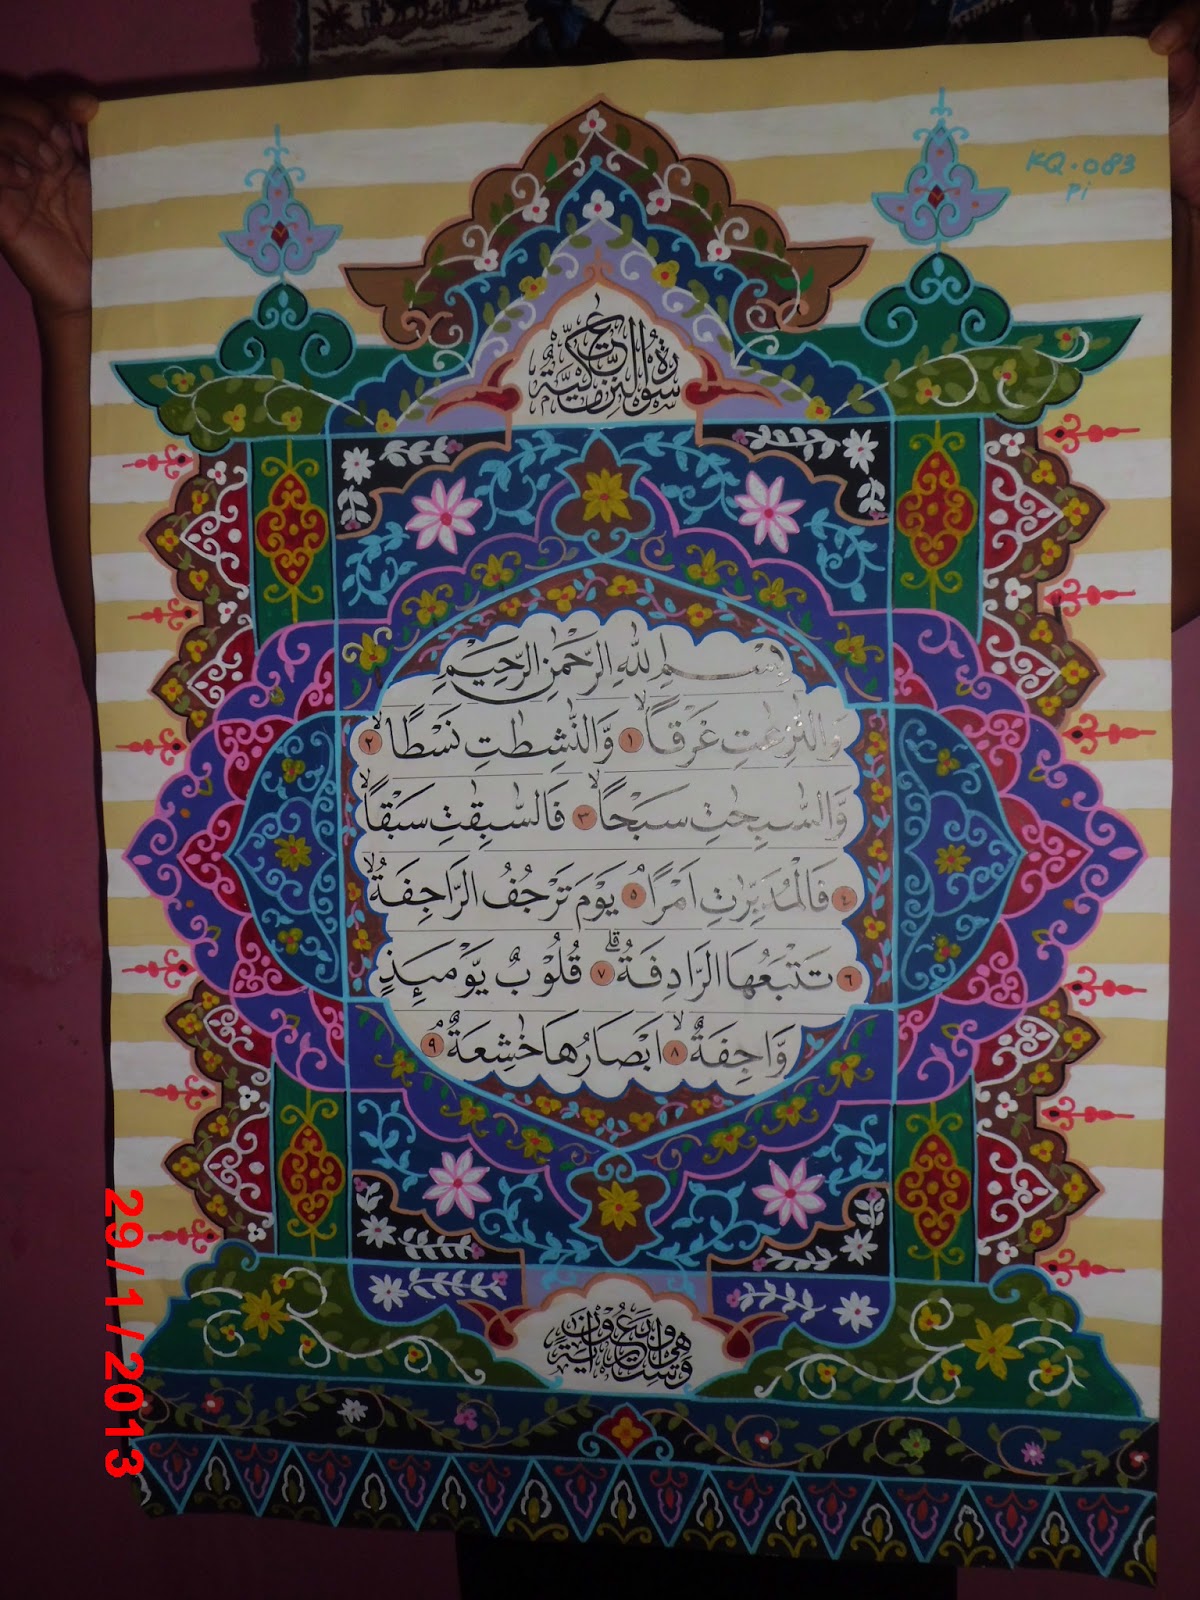 KQ.083
Pi
سُوْرَةُ النّٰزِعٰتِ مَكِّيَّةٌ
بِسْمِ اللهِ الرَّحْمٰنِ الرَّحِيْمِ
وَالنّٰزِعٰتِ غَرْقًاۙ ١ وَّالنّٰشِطٰتِ نَسْطًاۙ ٢
وَّالسّٰبِحٰتِ سَبْحًاۙ ٣ فَالسّٰبِقٰتِ سَبْقًاۙ
٤ فَالْمُدَبِّرٰتِ اَمْرًاۘ ٥ يَوْمَ تَرْجُفُ الرَّاجِفَةُۙ
٦ تَتْبَعُهَا الرَّادِفَةُ ۗ ٧ قُلُوْبٌ يَّوْمَىِٕذٍ
وَّاجِفَةٌۙ ٨ اَبْصَارُهَا خَاشِعَةٌۘ ٩
وَهِيَ سِتٌّ وَاَرْبَعُوْنَ اٰيَةً
29/1/2013